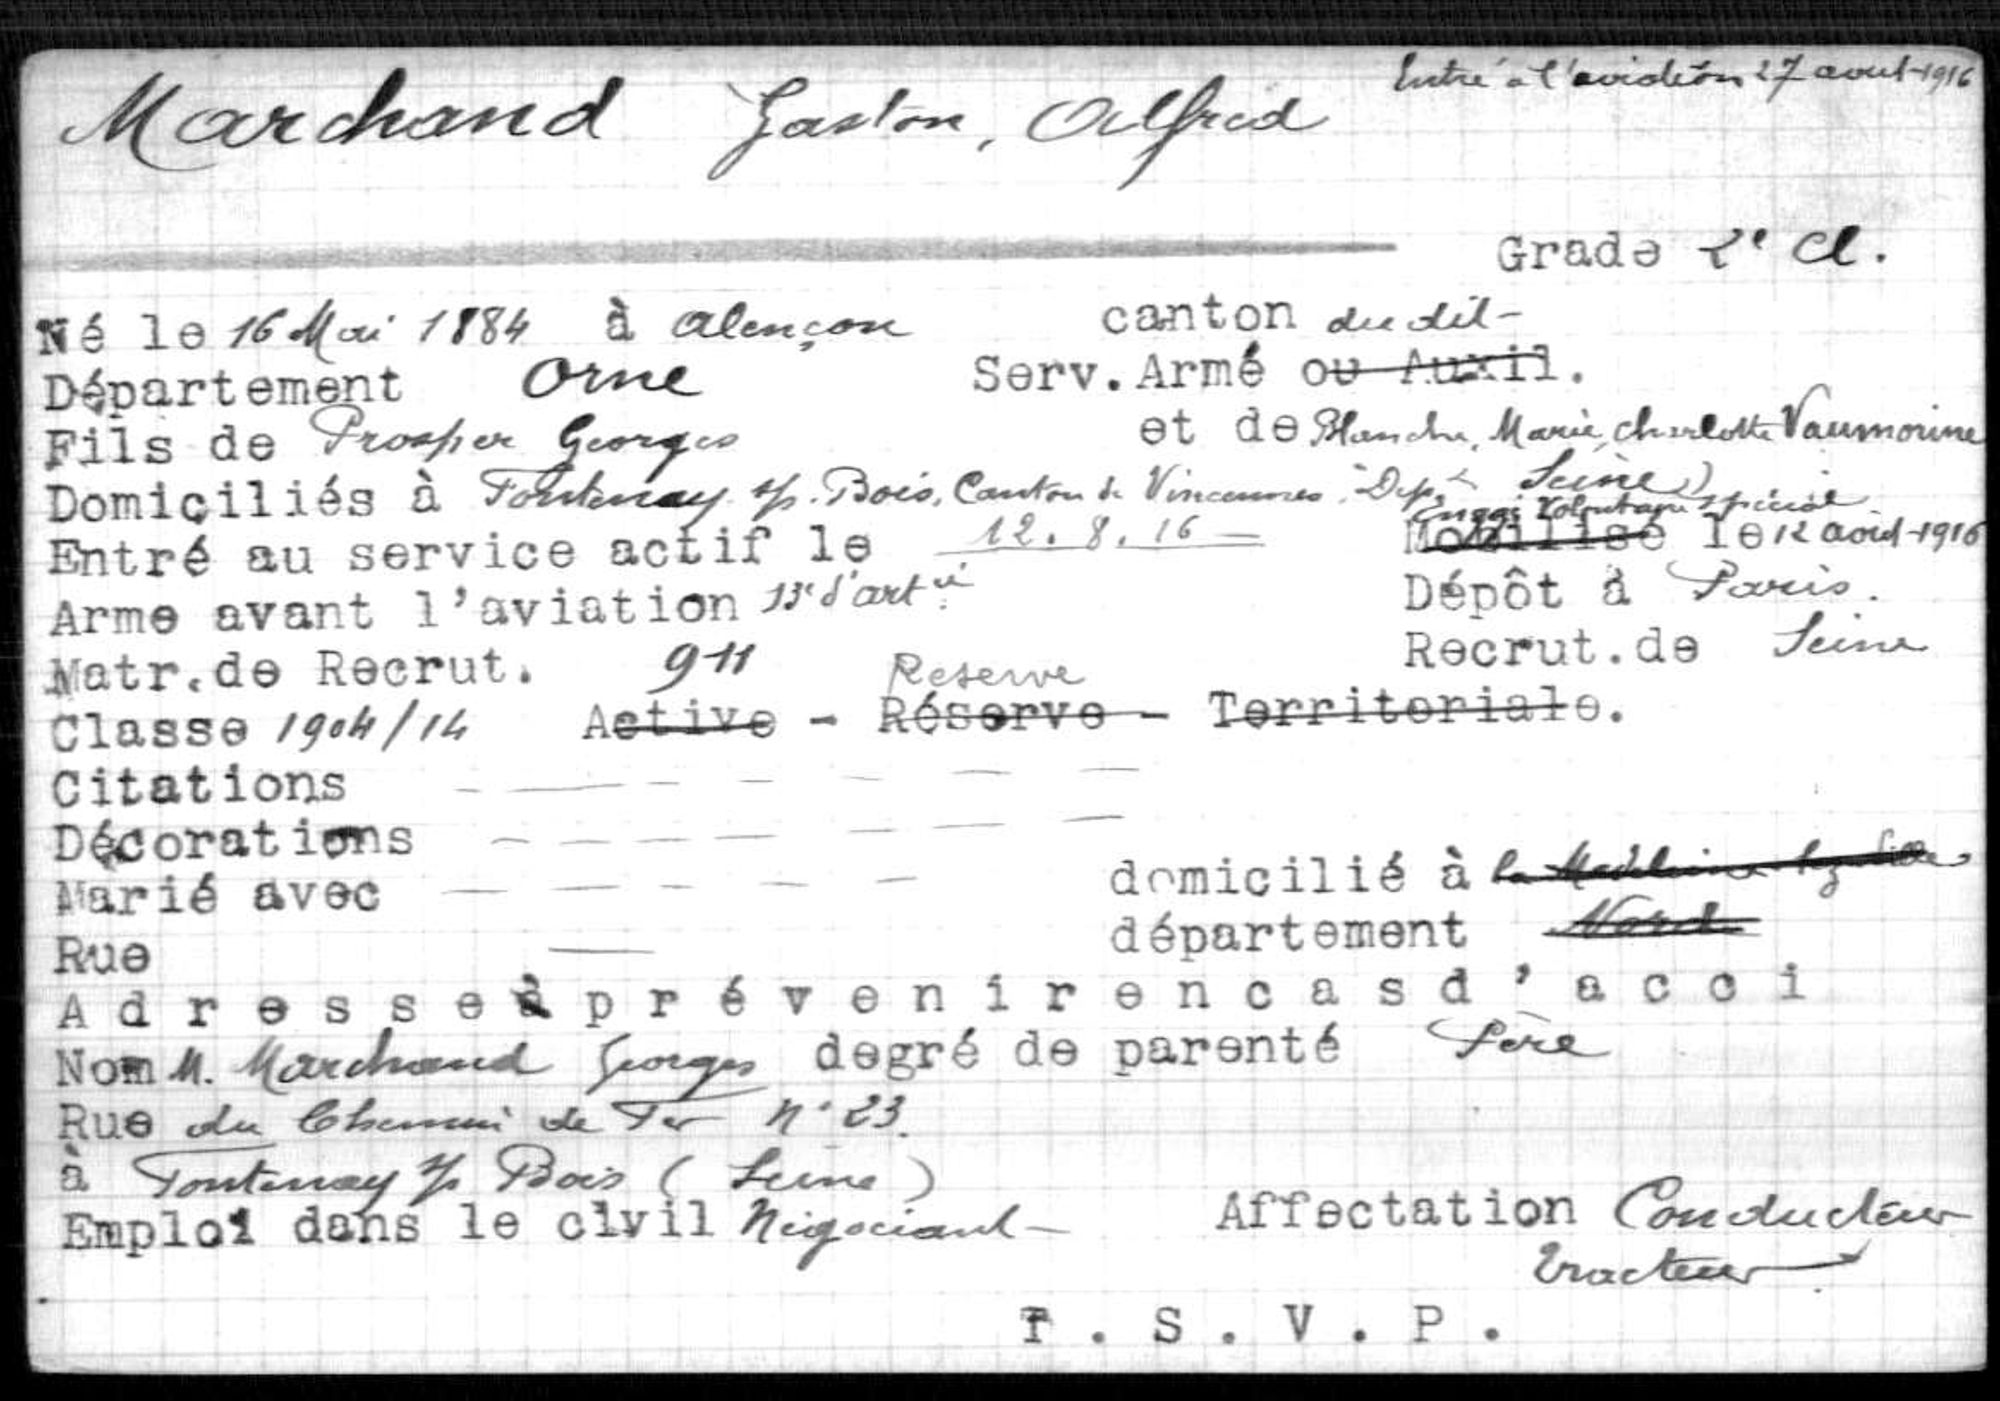 Entré à l'aviation 27 aout 1916
Marchand Gaston, Alfred
Grade 2e Cl.
Né le 16 Mai 1884 à Alençon canton dudit
Département Orne Serv. Armé ou Auxil.
Fils de Prosper Georges et de Blanche, Marie, Charlotte Vaumorine
Domiciliés à Fontenay s/s. Bois, Canton de Vincennes, Dept Seine)
Engagé Volontaire spécial
Entré au service actif le 12.8.16 Mobilisé le 12 août 1916
Arme avant l'aviation 13e d'artie Dépôt à Paris.
Matr. de Recrut. 911 Recrut. de Seine
Reserve
Classe 1904/14 Active - Réserve - Territoriale.
Citations
Décorations
Marié avec domicilié à la Madeleine
Rue département Nord
Adresse à prévenir en cas d'acci
Nom M. Marchand Georges degré de parenté Père
Rue du Chemin de Fer N° 23.
à Fontenay s/s Bois (Seine)
Emploi dans le civil Négociant Affectation Conducteur
tracteur
T.S.V.P.